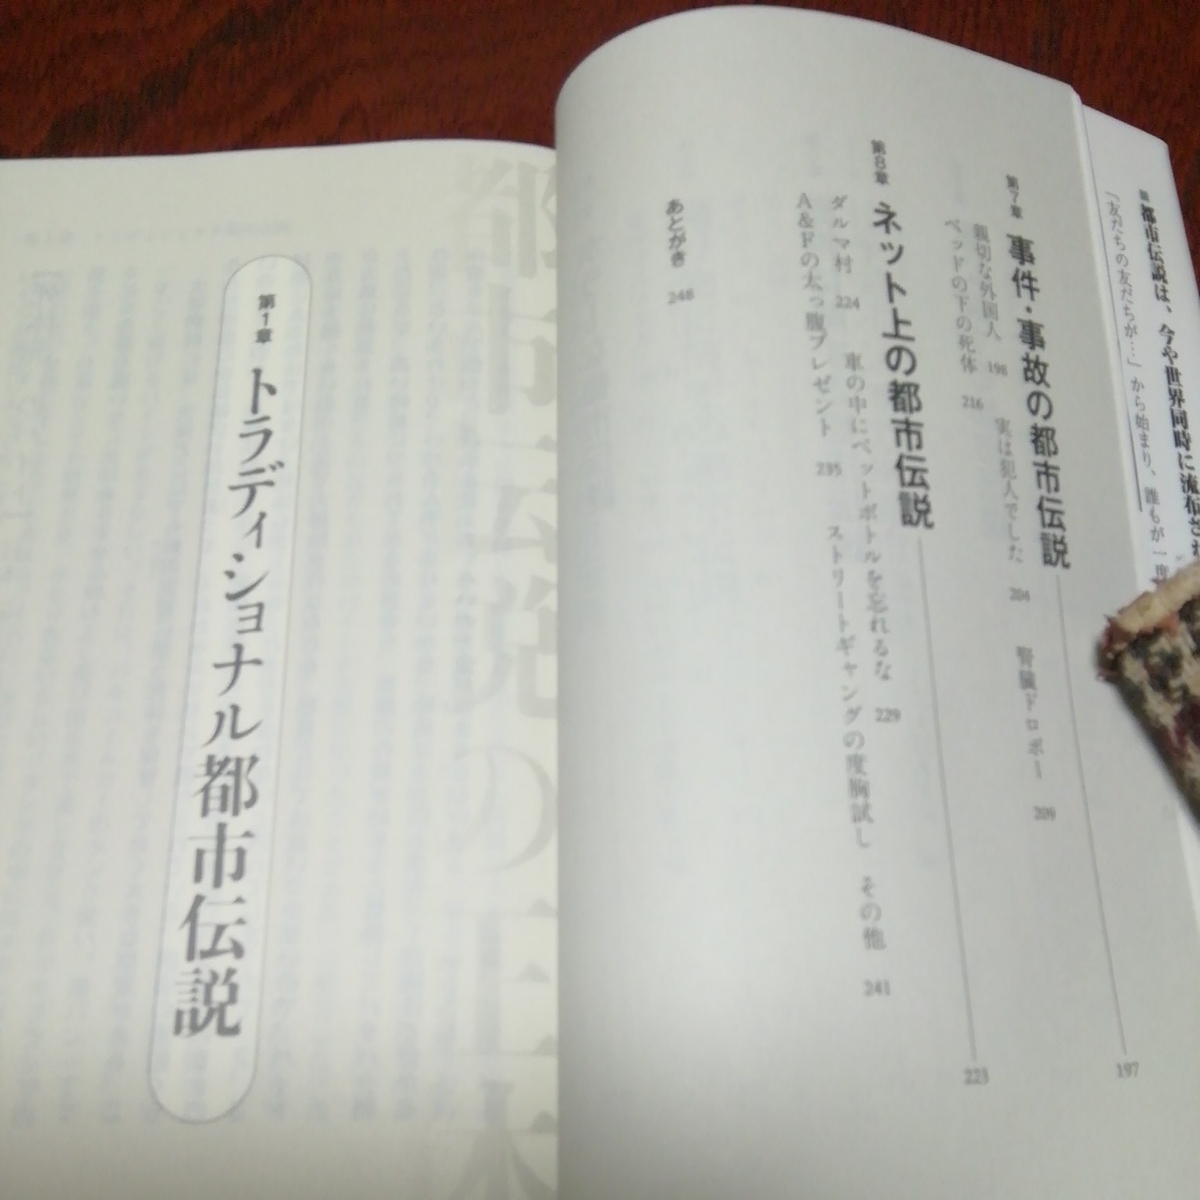 都市伝説は、今や世界同時に流布さ
「友だちの友だちが…」から始まり、誰もが一度
第7章 事件・事故の都市伝説 197
親切な外国人 198 実は犯人でした 204 腎臓ドロボー 209
ベッドの下の死体 216
第8章 ネット上の都市伝説 223
ダルマ村 224 車の中にペットボトルを忘れるな 229
A&Fの太っ腹プレゼント 235 ストリートギャングの度胸試し その他 241
あとがき 248
都市伝説の正体
第1章 トラディショナル都市伝説